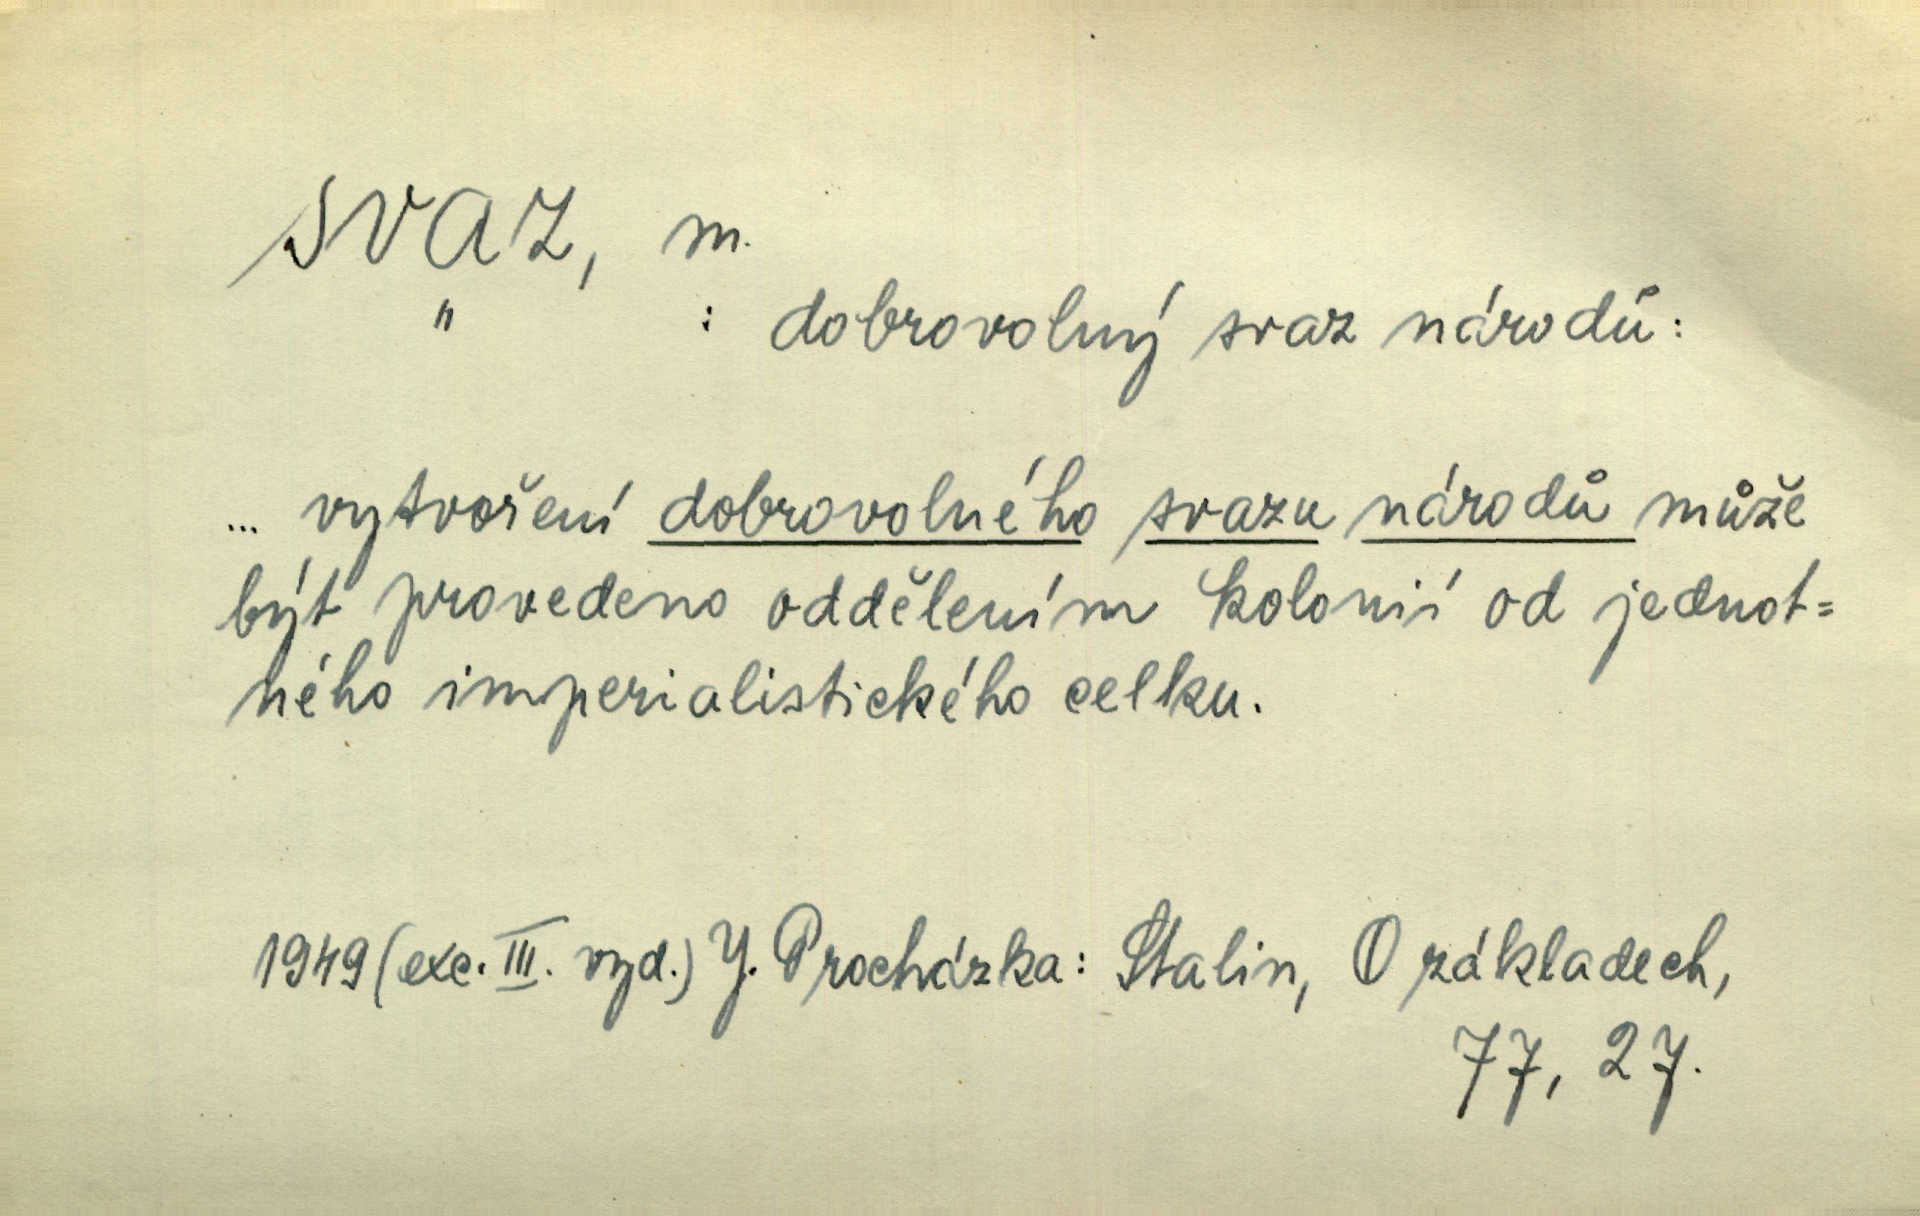 SVAZ, m.
" : dobrovolný svaz národů:
... vytvoření dobrovolného svazu národů může
být provedeno oddělením kolonií od jednot=
ného imperialistického celku.
1949 (exc. III. vyd.) Y. Procházka: Stalin, O základech,
77, 27.